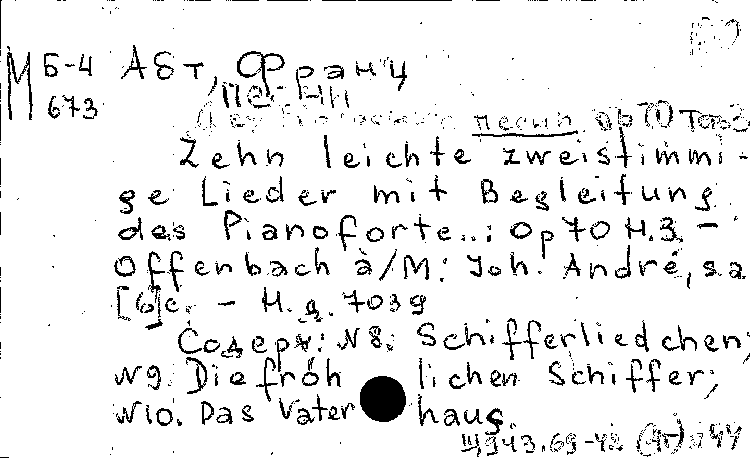 М Б-4 Абт, Франц
673 Песни
песни ор 70 Тет 3
Zehn leichte zweistimmi-
ge Lieder mit Begleitung
des Pianoforte..: Op 70 H.3. -
Offenbach a/M: Joh. André, s.a
[6]с. - Н.д. 7039
Содерж: N 8: Schifferliedchen;
N 9. Die fröhlichen Schiffer;
N 10. Das Vaterhaus.